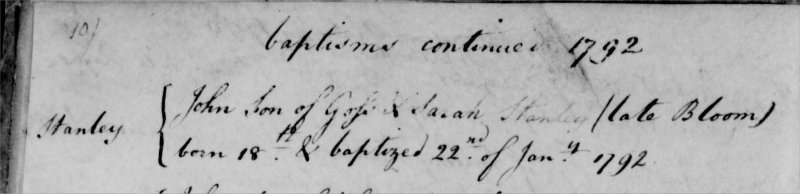 101
baptisms continued 1792
Stanley { John Son of Gosr & Sarah Stanley (late Bloom)
born 18th & baptized 22nd of Jany 1792